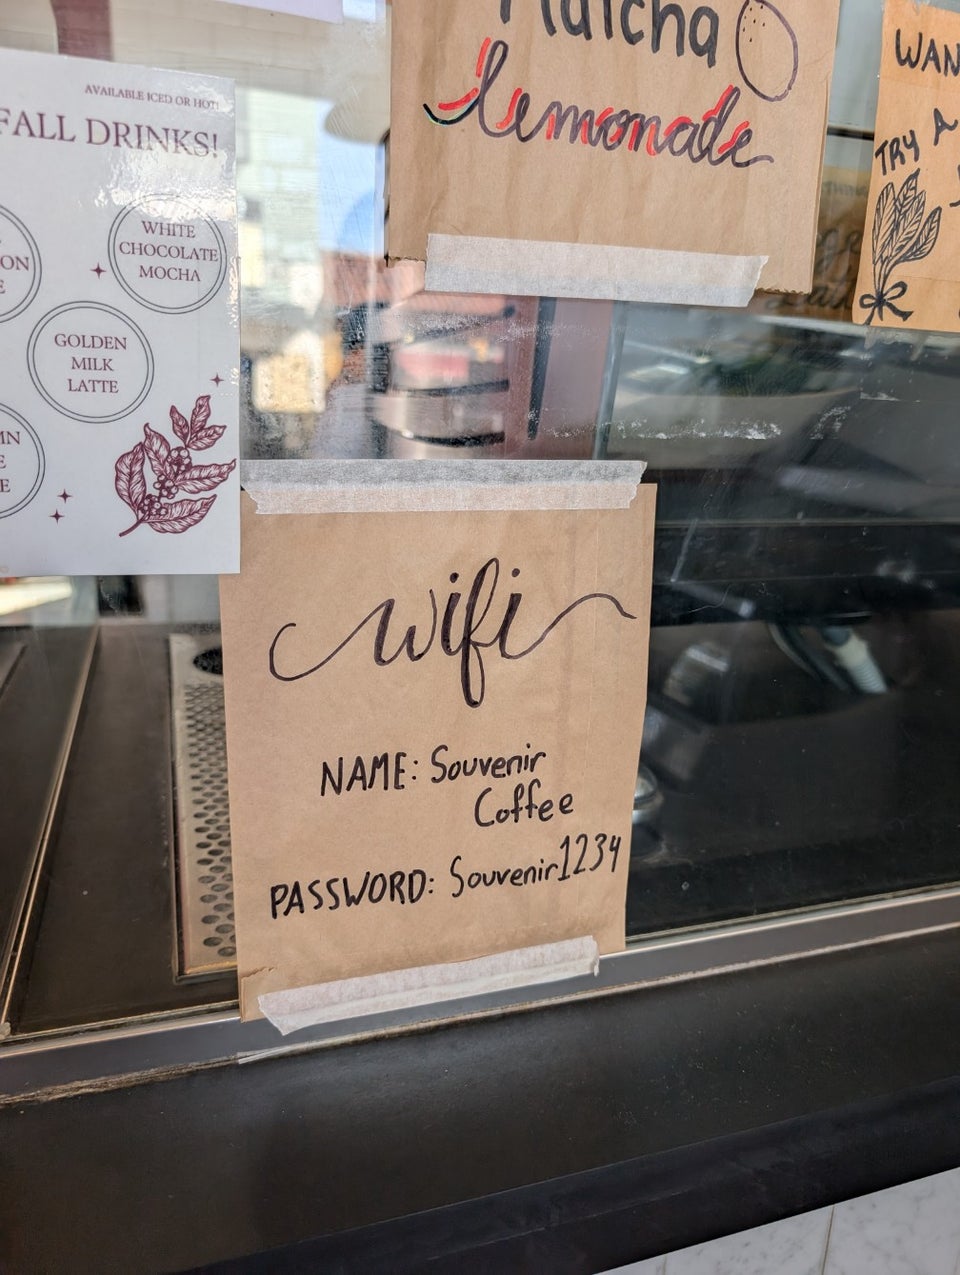 AVAILABLE ICED OR HOT!
FALL DRINKS!
WHITE
CHOCOLATE
MOCHA
GOLDEN
MILK
LATTE
Matcha
lemonade
TRY A
wifi
NAME: Souvenir
Coffee
PASSWORD: Souvenir1234